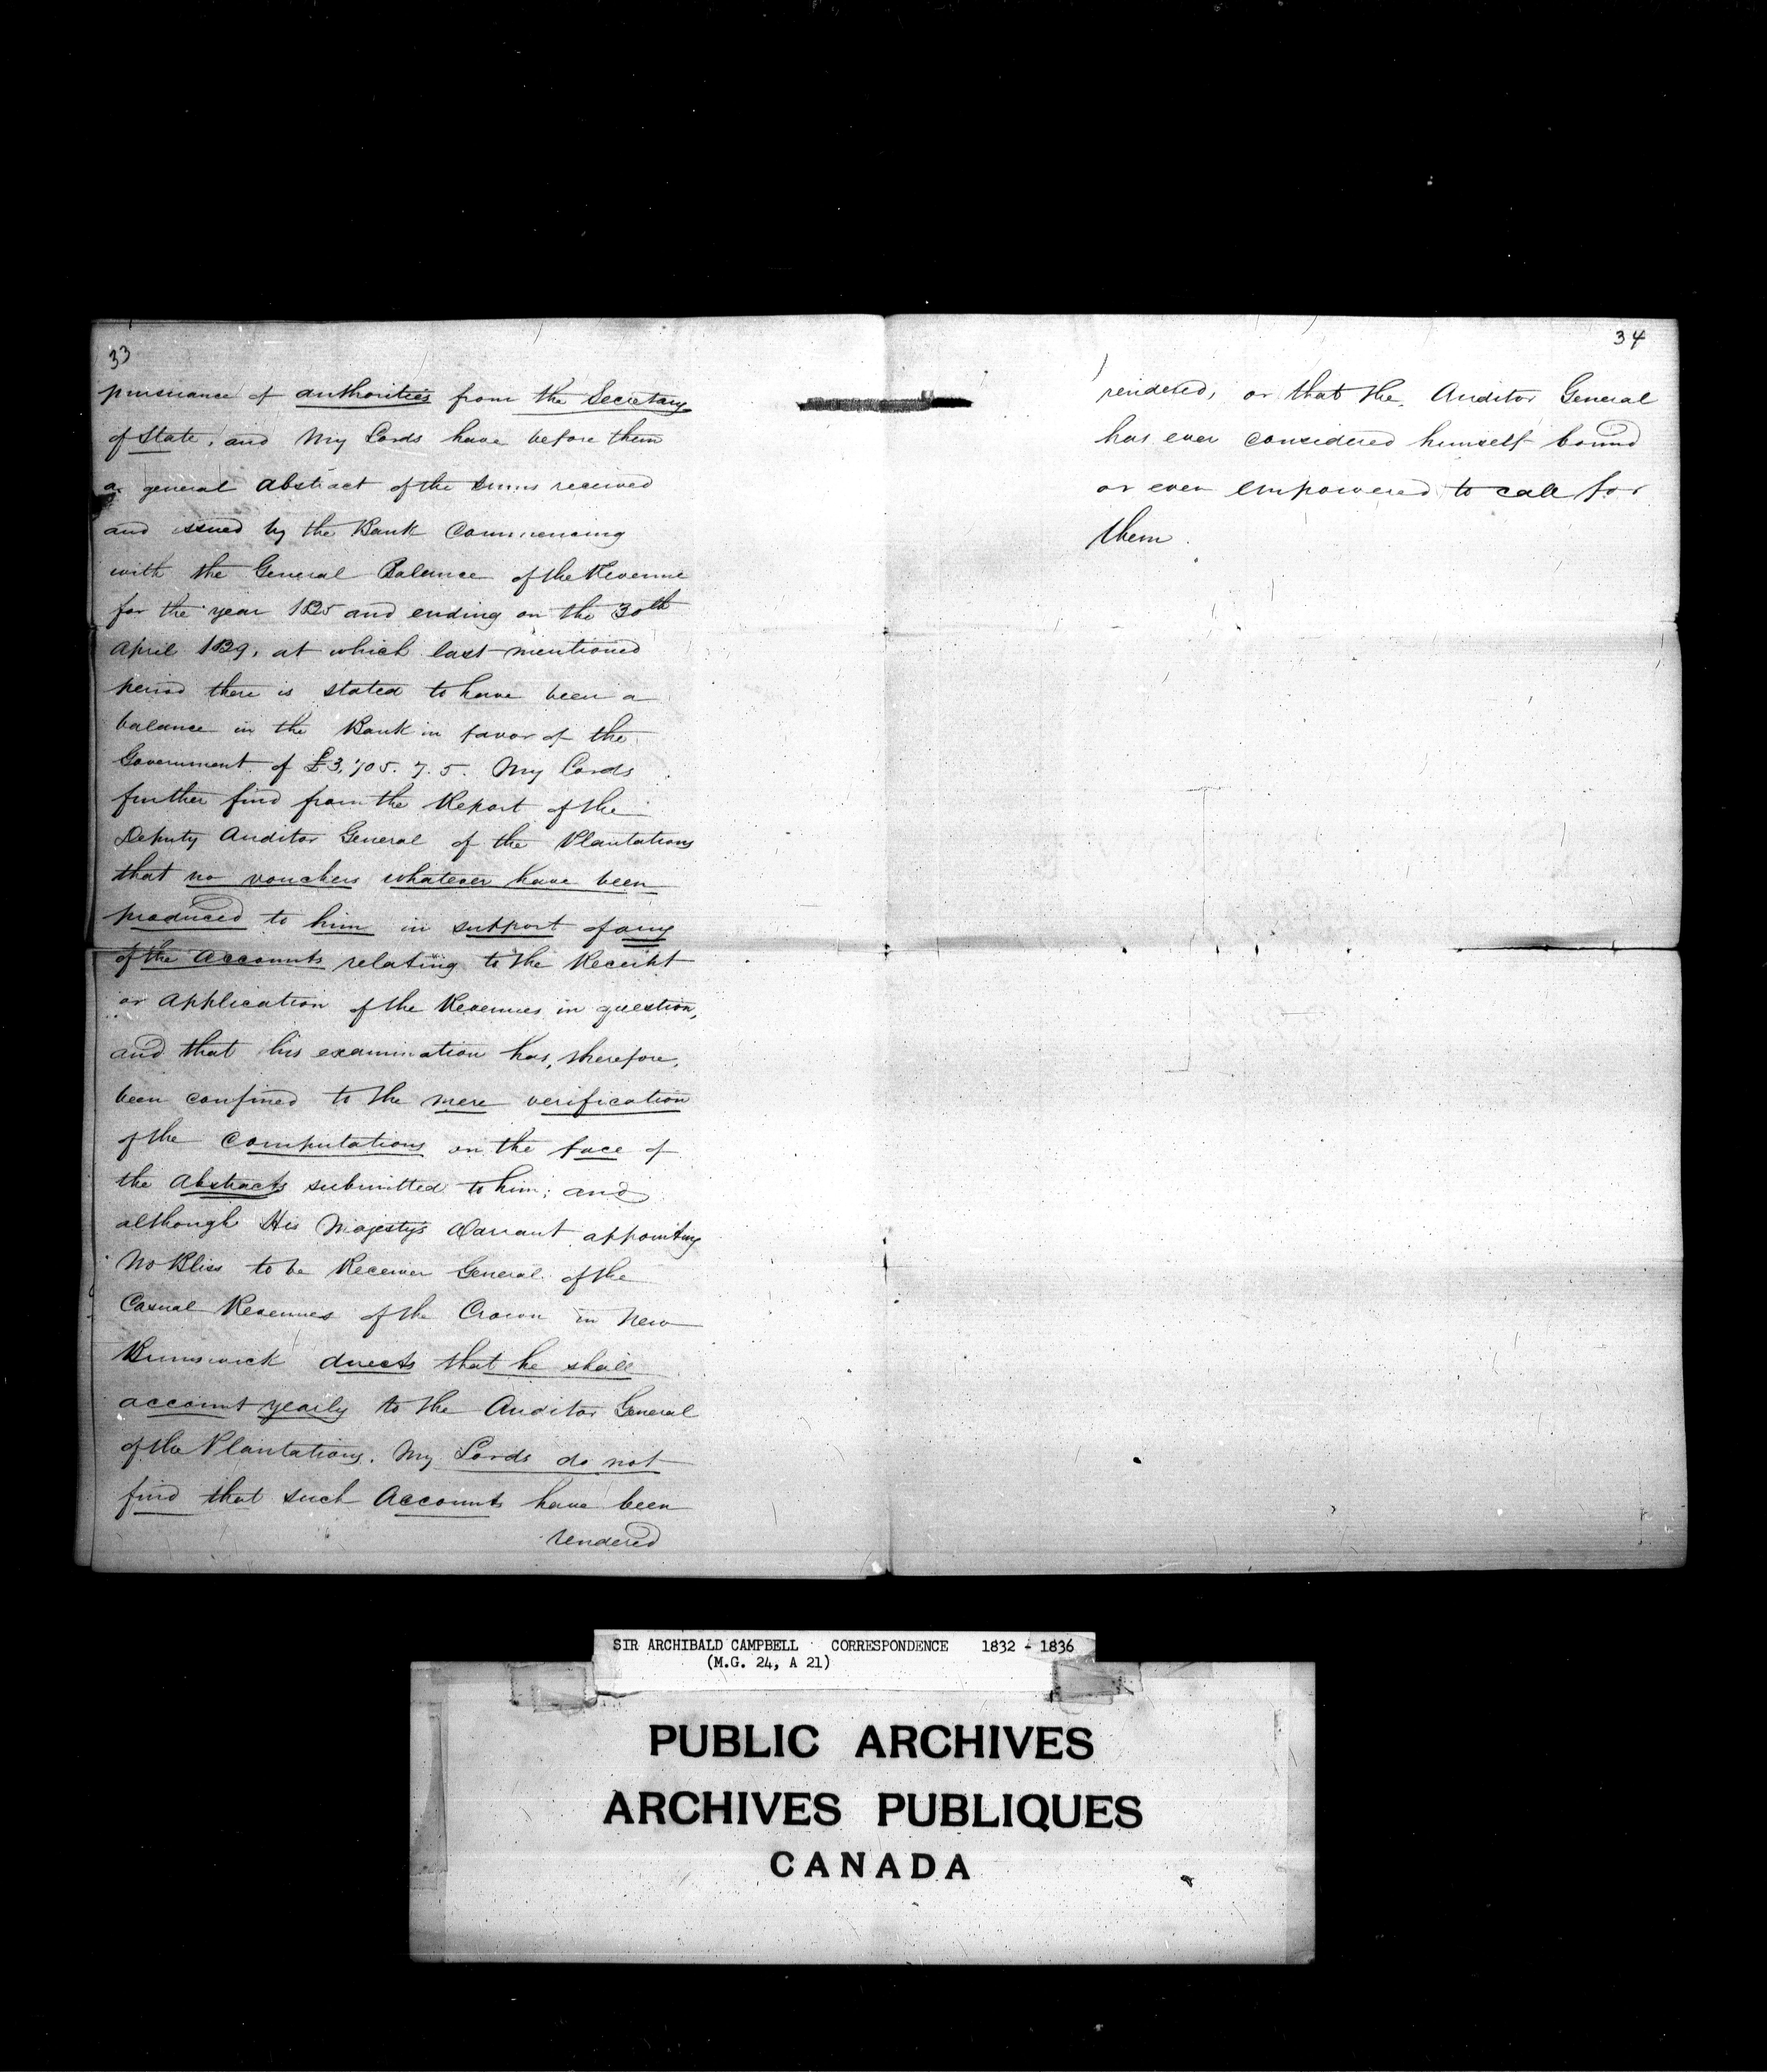 33
pursuance of authorities from the Secretary
of State, and My Lords have before them
a general Abstract of the sums received
and issued by the Bank Commencing
with the General Balance of the Revenue
for the year 1825 and ending on the 30th
April 1829, at which last mentioned
period there is stated to have been a
balance in the Bank in favor of the
Government of £3,705. 7. 5. My Lords
further find from the Report of the
Deputy Auditor General of the Plantations
that no vouchers whatever have been
produced to him in support of any
of the Accounts relating to the Receipt
or Application of the Revenues in question,
and that his examination has, therefore,
been confined to the mere verification
of the Computations on the face of
the Abstracts submitted to him; and
although His Majesty's Warrant appointing
Mr Bliss to be Receiver General of the
Casual Revenues of the Crown in New
Brunswick directs that he shall
account yearly to the Auditor General
of the Plantations. My Lords do not
find that such Accounts have been
rendered
34
rendered, or that the Auditor General
has ever considered himself bound
or even empowered to call for
them.
SIR ARCHIBALD CAMPBELL CORRESPONDENCE 1832 - 1836
(M.G. 24, A 21)
PUBLIC ARCHIVES
ARCHIVES PUBLIQUES
CANADA